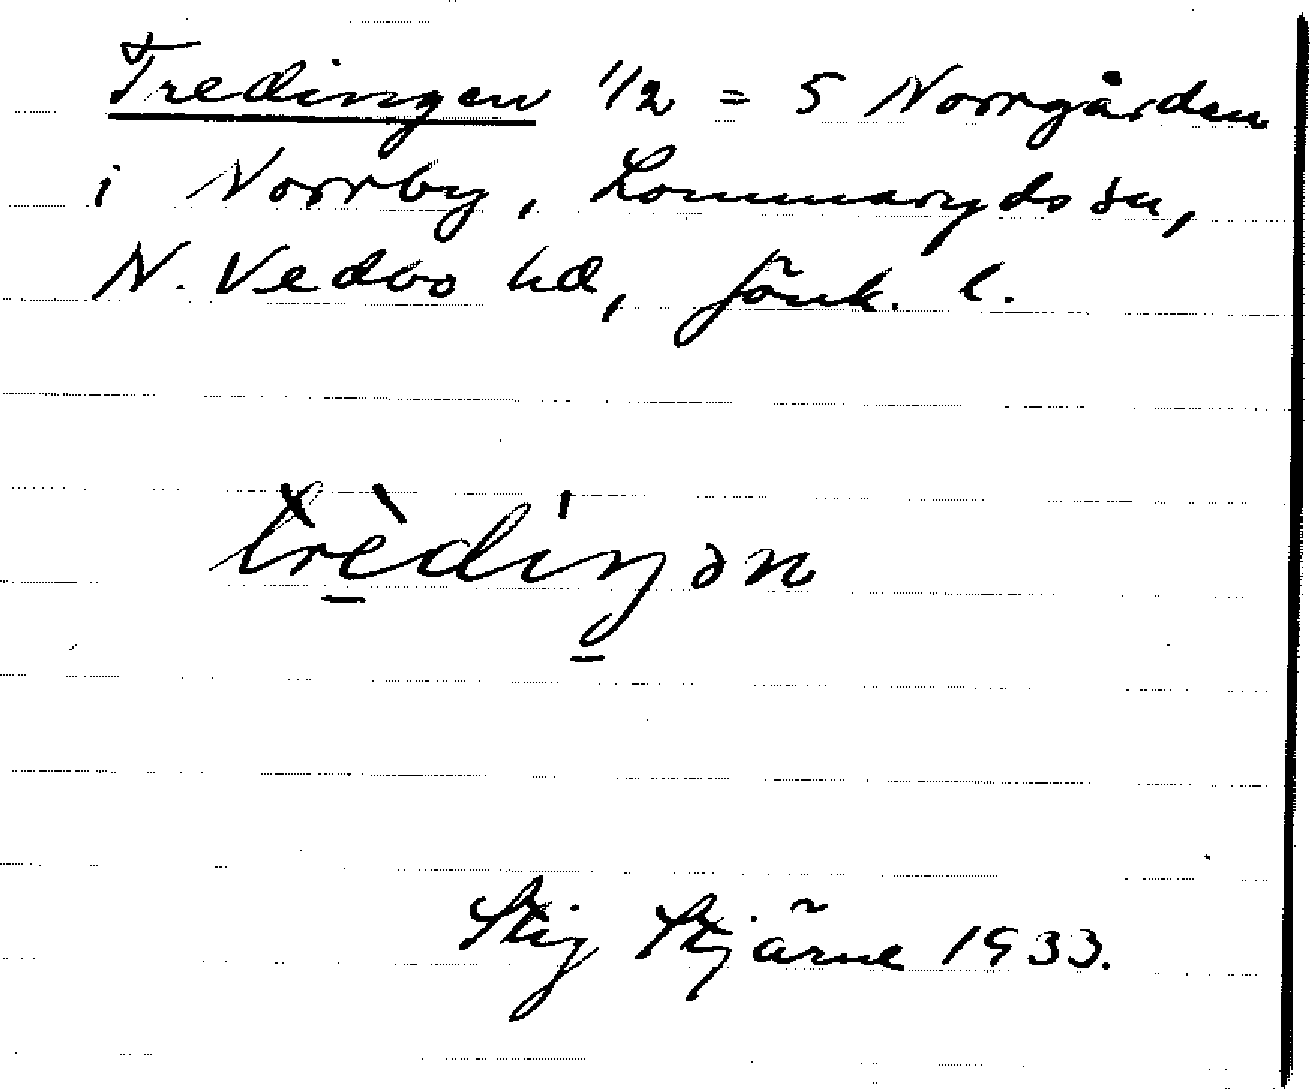 Tredingen 1/2 = 5 Norrgården
i Norrby, Lommaryds sn,
N. Vedbo hd, Jönk. l.
trèdiŋən
Stig Stjärne 1933.